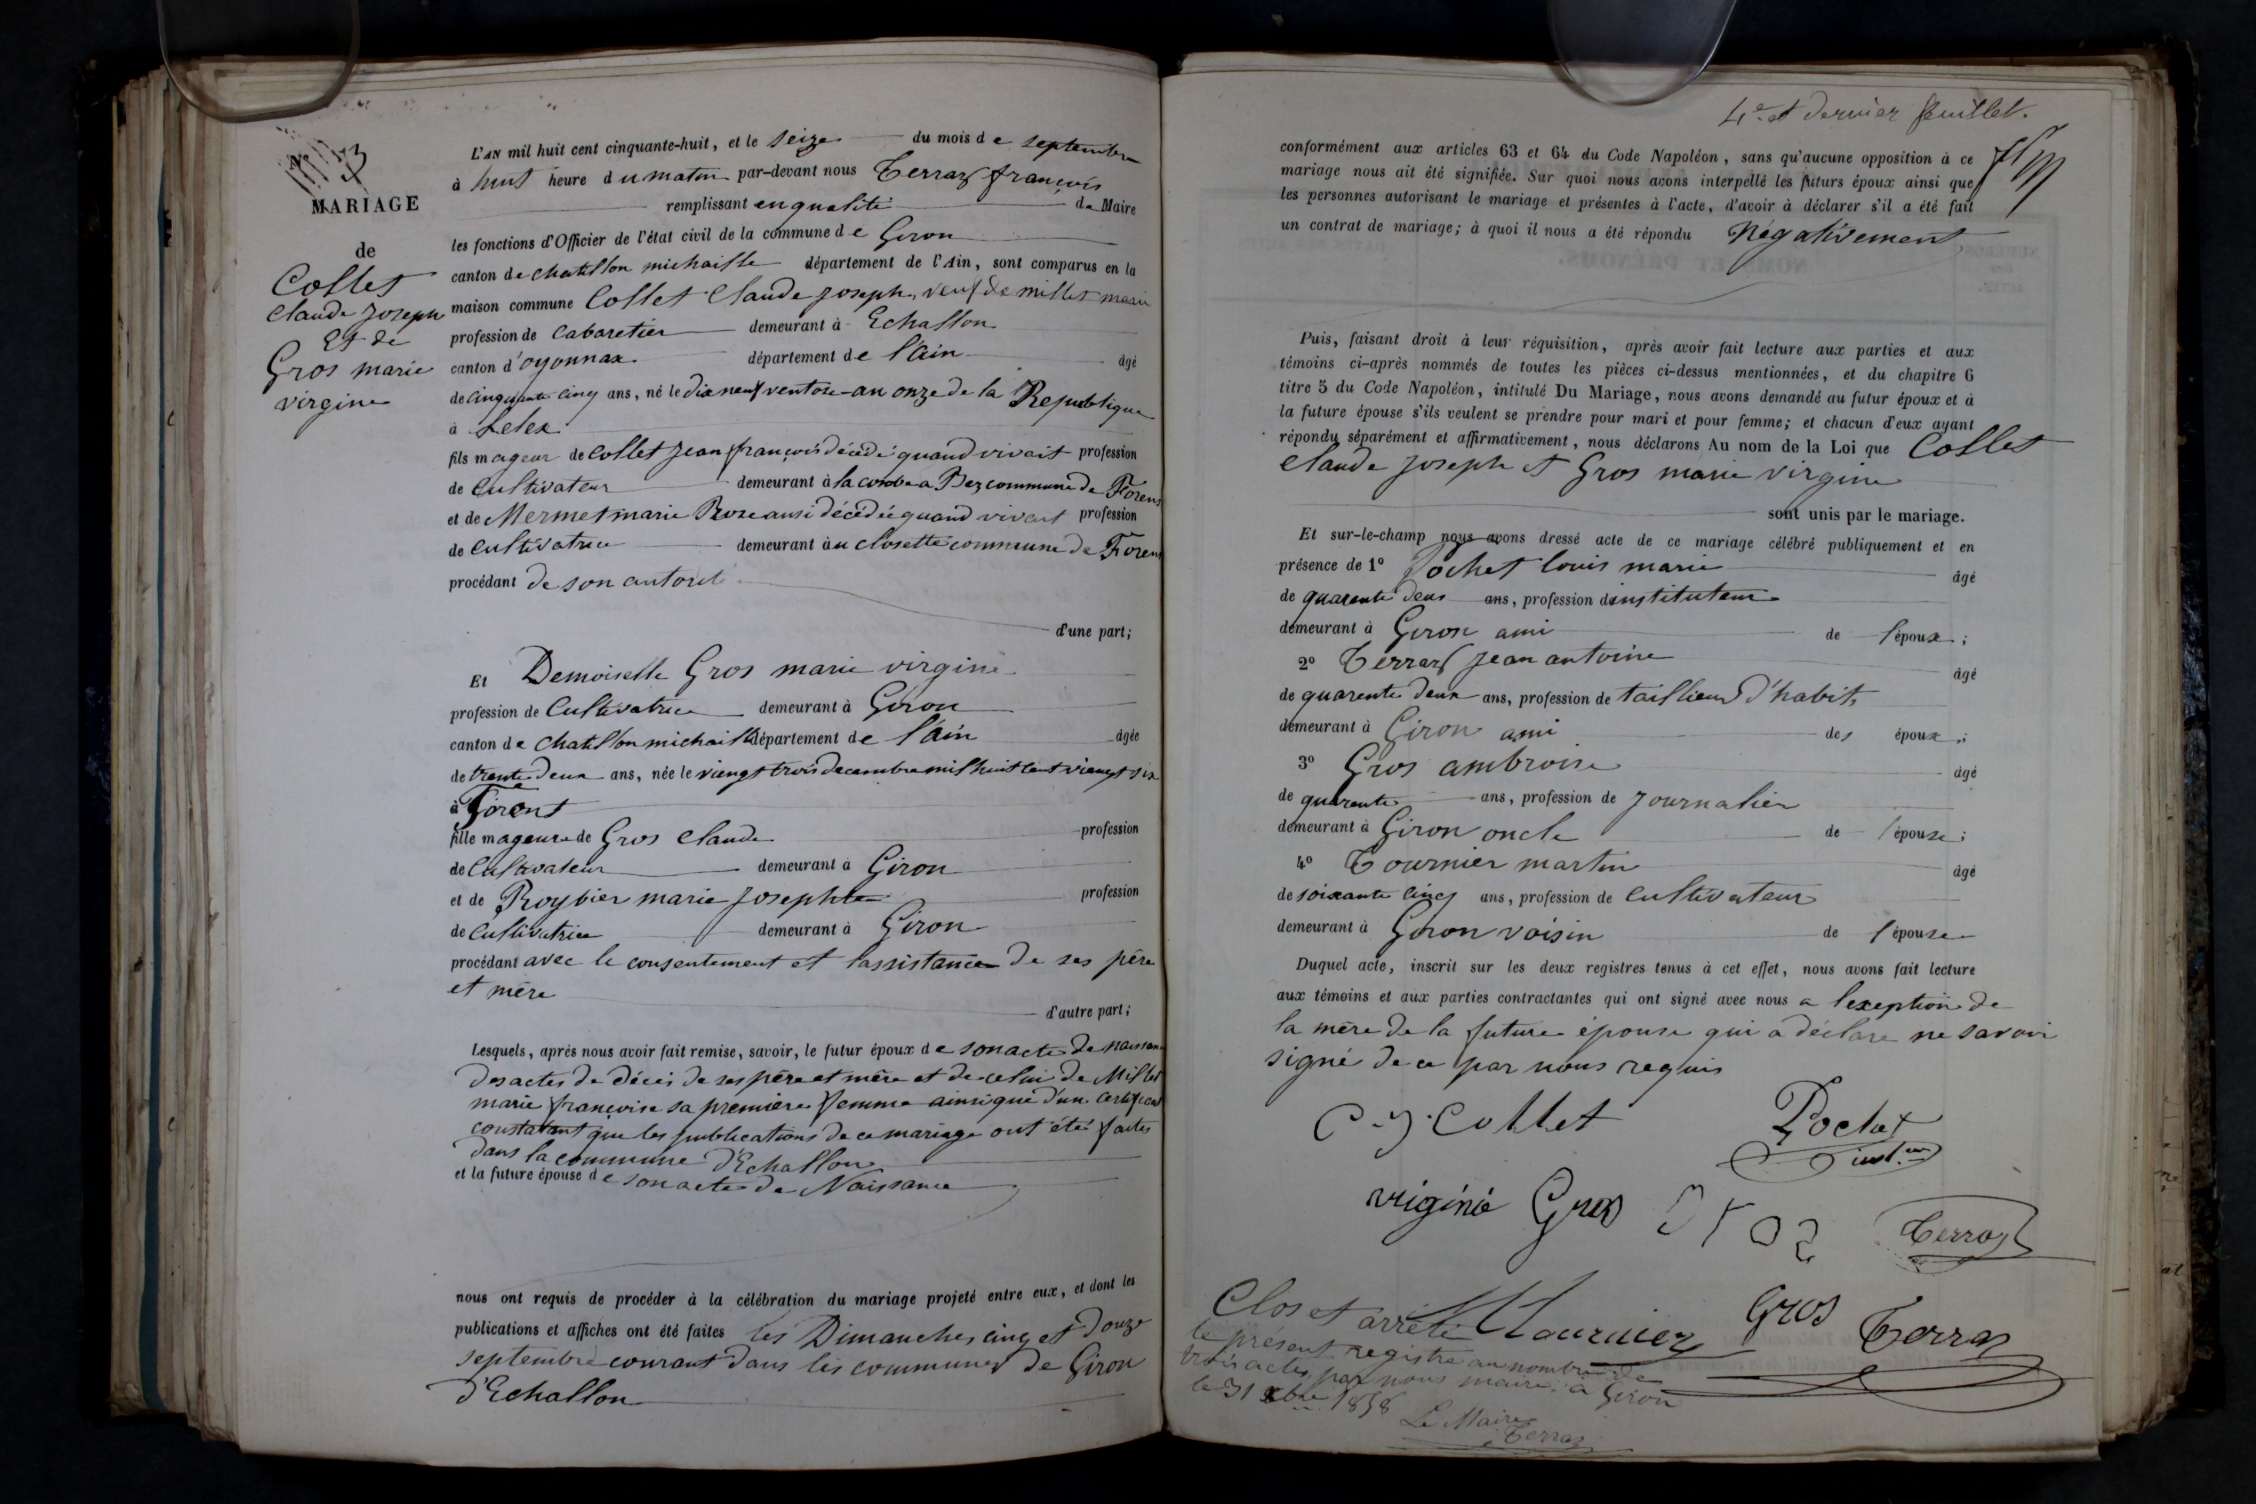 N° 3
MARIAGE
de
Collet
Claude Joseph
Et de
Gros marie
virginie
L'AN mil huit cent cinquante-huit, et le seize du mois de septembre
à huit heure du matin par-devant nous Terraz françois
remplissant en qualité de Maire
les fonctions d'Officier de l'état civil de la commune de Giron
canton de chatillon michaille département de l'Ain, sont comparus en la
maison commune Collet Claude joseph, veuf de millet marie
profession de Cabaretier demeurant à Echallon
canton d'oyonnax département de l'ain âgé
de cinquante cinq ans, né le dix neuf ventose an onze de la Republique
à Lelex
fils mageur de collet jean françois décédé quand vivait profession
de Cultivateur demeurant à la combe a Bez commune de Forens
et de Mermet marie Roze aussi décédée quand vivait profession
de Cultivatrice demeurant à closette commune de Forens
procédant de son autorité
d'une part;
Et Demoiselle Gros marie virginie
profession de Cultivatrice demeurant à Giron
canton de chatillon michaille département de l'ain âgée
de trente deux ans, née le viengt trois decembre mil huit cent viengt six
à Forent
fille mageure de Gros Claude profession
de Cultivateur demeurant à Giron
et de Roybier marie josephte profession
de Cultivatrice demeurant à Giron
procédant avec le consentement et l'assistance de ses père
et mère
d'autre part;
Lesquels, après nous avoir fait remise, savoir, le futur époux de son acte de naissance
des actes de décès de ses père et mère et de celui de Millet
marie françoise sa première femme ainsi que d'un certificat
constatant que les publications de ce mariage ont été faites
dans la commune d'Echallon
et la future épouse de son acte de Naissance
nous ont requis de procéder à la célébration du mariage projeté entre eux, et dont les
publications et affiches ont été faites les Dimanches cinq et douze
septembre courant dans les communes de Giron
d'Echallon
4e et dernier feuillet.
conformément aux articles 63 et 64 du Code Napoléon, sans qu'aucune opposition à ce
mariage nous ait été signifiée. Sur quoi nous avons interpellé les futurs époux ainsi que
les personnes autorisant le mariage et présentes à l'acte, d'avoir à déclarer s'il a été fait
un contrat de mariage; à quoi il nous a été répondu Négativement
Puis, faisant droit à leur réquisition, après avoir fait lecture aux parties et aux
témoins ci-après nommés de toutes les pièces ci-dessus mentionnées, et du chapitre 6
titre 5 du Code Napoléon, intitulé Du Mariage, nous avons demandé au futur époux et à
la future épouse s'ils veulent se prendre pour mari et pour femme; et chacun d'eux ayant
répondu séparément et affirmativement, nous déclarons Au nom de la Loi que Collet
Claude joseph et Gros marie virginie
sont unis par le mariage.
Et sur-le-champ nous avons dressé acte de ce mariage célébré publiquement et en
présence de 1° Pochet louis marie âgé
de quarente deux ans, profession d'instituteur
demeurant à Giron ami de l'époux;
2° Terraz jean antoine âgé
de quarente deux ans, profession de taillieur d'habits
demeurant à Giron ami des époux;
3° Gros ambroise âgé
de quarente ans, profession de journalier
demeurant à Giron oncle de l'épouse;
4° Tournier martin âgé
de soixante cinq ans, profession de Cultivateur
demeurant à Giron voisin de l'épouse
Duquel acte, inscrit sur les deux registres tenus à cet effet, nous avons fait lecture
aux témoins et aux parties contractantes qui ont signé avec nous a lexeption de
la mère de la future épouse qui a déclare ne savoir
signé de ce par nous requis
C J Collet Pochet
inst.eur
virginie Gros Gros Terraz
Tournier Gros Terraz
Clos et arrêté
le présent registre au nombre de
trois actes par nous maire à Giron
le 31 xbre 1858
Le Maire
Terraz